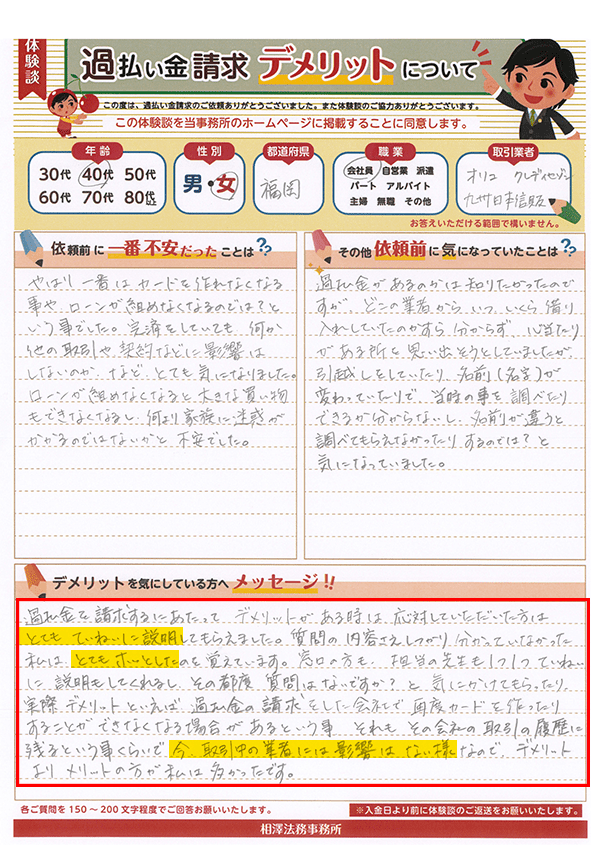 体験談
過払い金請求 デメリットについて
この度は、過払い金請求のご依頼ありがとうございました。また体験談のご協力ありがとうございます。
この体験談を当事務所のホームページに掲載することに同意します。
年齢
30代 40代 50代
60代 70代 80代以上
性別
男・女
都道府県
福岡
職業
会社員 自営業 派遣
パート アルバイト
主婦 無職 その他
取引業者
オリコ クレディセゾン
九州日本信販
お答えいただける範囲で構いません。
依頼前に一番不安だったことは??
やはり一番はカードを作れなくなる
事や ローンが組めなくなるのでは?と
いう事でした。完済をしていても 何か
他の取引や 契約などに影響は
しないのか、など、とても気になりました。
ローンが組めなくなると大きな買い物
もできなくなるし、何より家族に迷惑が
かかるのではないかと 不安でした。
その他依頼前に気になっていたことは?
過払金があるのかは知りたかったので
すが、どこの業者から いつ、いくら借り
入れしていたのかすら 分からず、心当たり
がある所を思い出そうとしていましたが
引越しをしていたり、名前(名字)が
変わっていたりで、当時の事を調べたり
できるか分からないし、名前が違うと
調べてもらえなかったり するのでは?と
気になっていました。
デメリットを気にしている方へメッセージ!!
過払金を請求するにあたって デメリットがある時は 応対していただいた方は
とても ていねいに説明してもらえました。質問の内容さえしっかり分かっていなかった
私は、とてもホッとしたのを覚えています。窓口の方も、担当の先生も1つ1つていねい
に 説明もしてくれるし、その都度 質問はないですか?と 気にかけてもらったり、
実際 デメリットといえば 過払い金の請求をした会社で 再度カードを作ったり
することができなくなる場合があるという事 それも その会社の取引の履歴に
残るという事くらいで 今、取引中の業者には影響はない様なので、デメリット
より メリットの方が私は多かったです。
各ご質問を150~200文字程度でご回答お願いいたします。
※入金日より前に体験談のご返送をお願いいたします。
相澤法務事務所